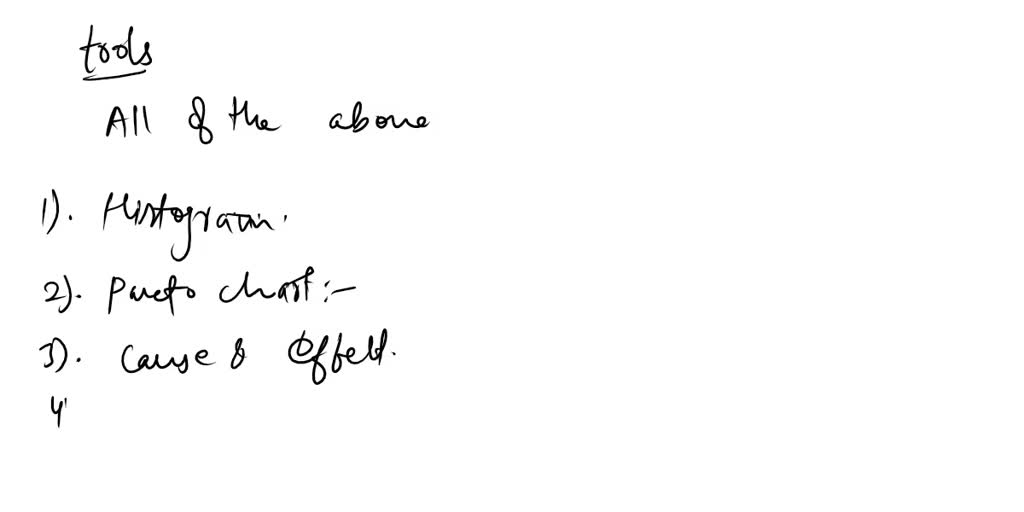 tools
All of the above
1). Histogram.
2). Pareto chart :-
3). Cause & Effect.
4